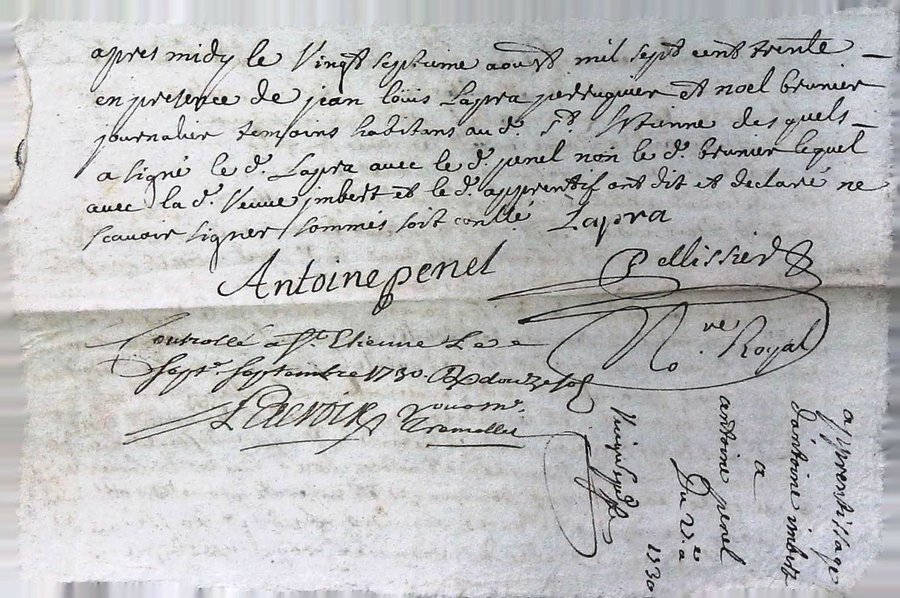 apres midy le Vingt septieme aoust mil sept cent trente
en presence de jean loüis Lapra perruquier et noel brunier
journalier temoins habitans aud. St. Etienne desquels
a signé le d. Lapra avec le d. penel non le d. brunier lequel
avec la d. Veuve jmbert et le d. apprentif ont dit et declaré ne
scavoir signer sommés soit conllé. Lapra
Antoine penel
Pellissier
No.re Royal
Controllé a St. Etienne Le
Sept.e Septembre 1730. R douze sols
LaCroix
apprentissage
D'antoine imbert
a
antoine penel
Du
1730